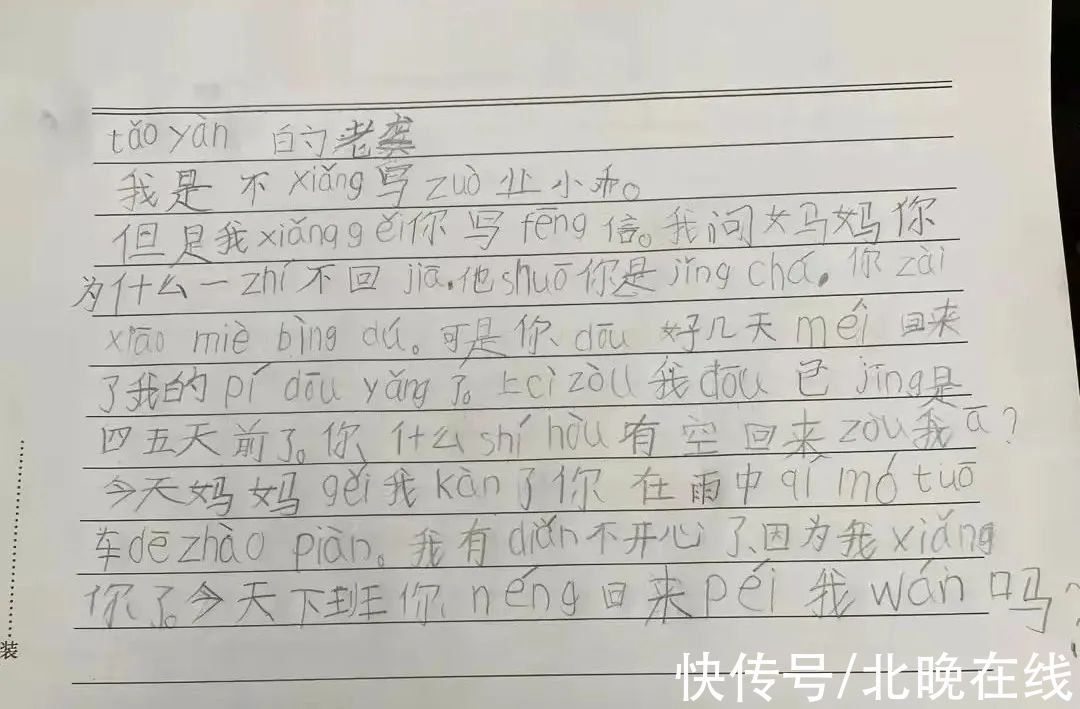 tǎo yàn 的老龚
我是不 xiǎng 写 zuò 业小乖。
但是我 xiǎng gěi 你写 fēng 信。我问妈妈你
为什么一 zhí 不回 jiā.他 shuō 你是 jǐng chá. 你 zài
xiāo miè bìng dú。可是你 dōu 好几天 méi 回来
了我的 pí dōu yǎng 了。上 cì zòu 我 dōu 已 jīng 是
四五天前了。你什么 shí hòu 有空回来 zòu 我 ā?
今天妈妈 gěi 我 kàn 了你在雨中 qí mó tuō
车 dē zhào piàn。我有 diǎn 不开心了,因为我 xiǎng
你了。今天下班你 néng 回来 péi 我 wán 吗?
装
快传号/北晚在线